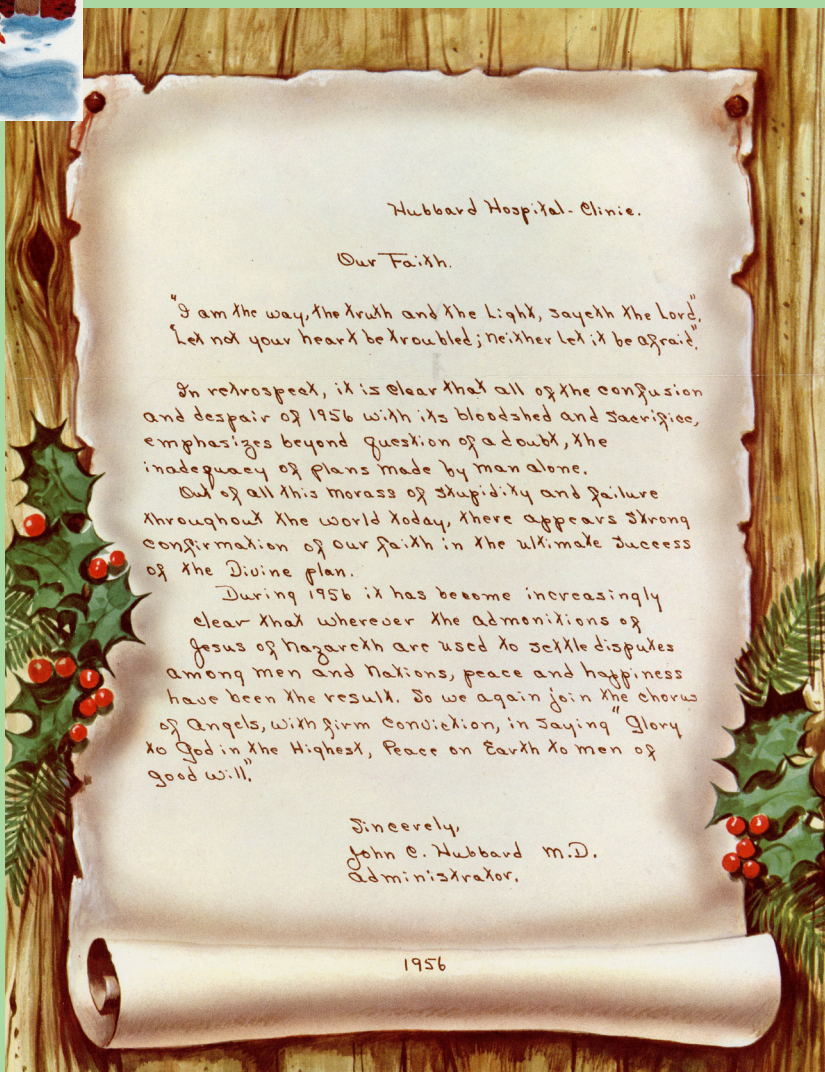 Hubbard Hospital-Clinic.
Our Faith.
"I am the way, the truth and the Light, sayeth the Lord".
"Let not your heart be troubled; neither let it be afraid".
In retrospect, it is clear that all of the confusion
and despair of 1956 with its bloodshed and sacrifice,
emphasizes beyond question of a doubt, the
inadequacy of plans made by man alone.
Out of all this morass of stupidity and failure
throughout the world today, there appears strong
confirmation of our faith in the ultimate success
of the Divine plan.
During 1956 it has become increasingly
clear that wherever the admonitions of
Jesus of Nazareth are used to settle disputes
among men and Nations, peace and happiness
have been the result. So we again join the chorus
of Angels, with firm conviction, in saying "Glory
to God in the Highest, Peace on Earth to men of
good will".
Sincerely,
John C. Hubbard M.D.
Administrator.
1956